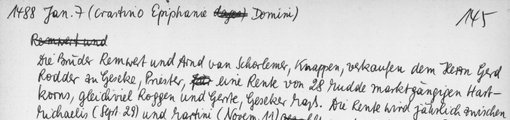 1488 Jan. 7 (Crastino Epiphanie Domini) 145
Remwert und
Die Brüder Remwert und Arnd van Schorlemer, Knappen, verkaufen dem Herrn Gerd
Rodder zu Geseke, Priester, eine Rente von 28 Mudde marktgängigen Hart-
korns, gleichviel Roggen und Gerste, Geseker Maß. Die Rente wird jährlich zwischen
Michaelis (Sept. 29) und Martini (Novem. 11)